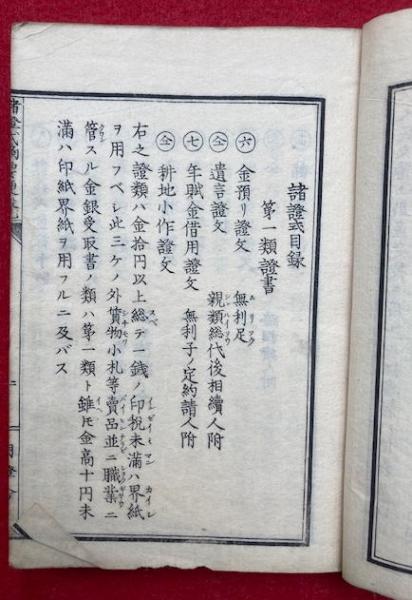 諸證式目録
第一類證書
㊅ 金預り證文 無利足
㊎ 遺言證文 親類総代後相續人附
㊆ 年賦金借用證文 無利子ノ定約請人附
㊎ 耕地小作證文
右之證類ハ金拾円以上総テ一錢ノ印税未滿ハ界紙
ヲ用フベシ此三ケノ外質物小札等賣品並ニ職業ニ
管スル金銀受取書ノ類ハ第一類ト雖モ金高十円未
滿ハ印紙界紙ヲ用フルニ及バス